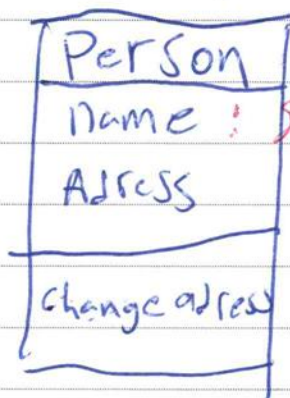 Person
name :
Adress
change adress